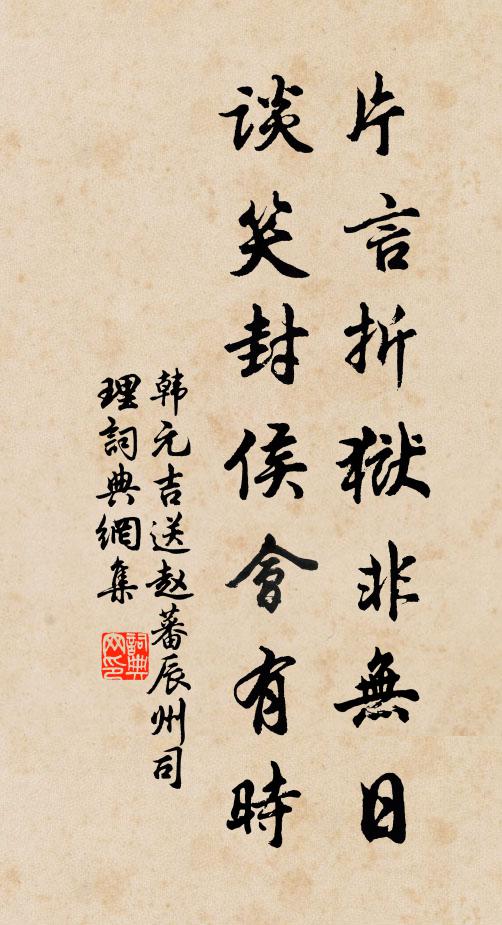 片言折獄非無日
談笑封侯會有時
韩元吉送赵蕃辰州司
理詞典網集
詞典
网印